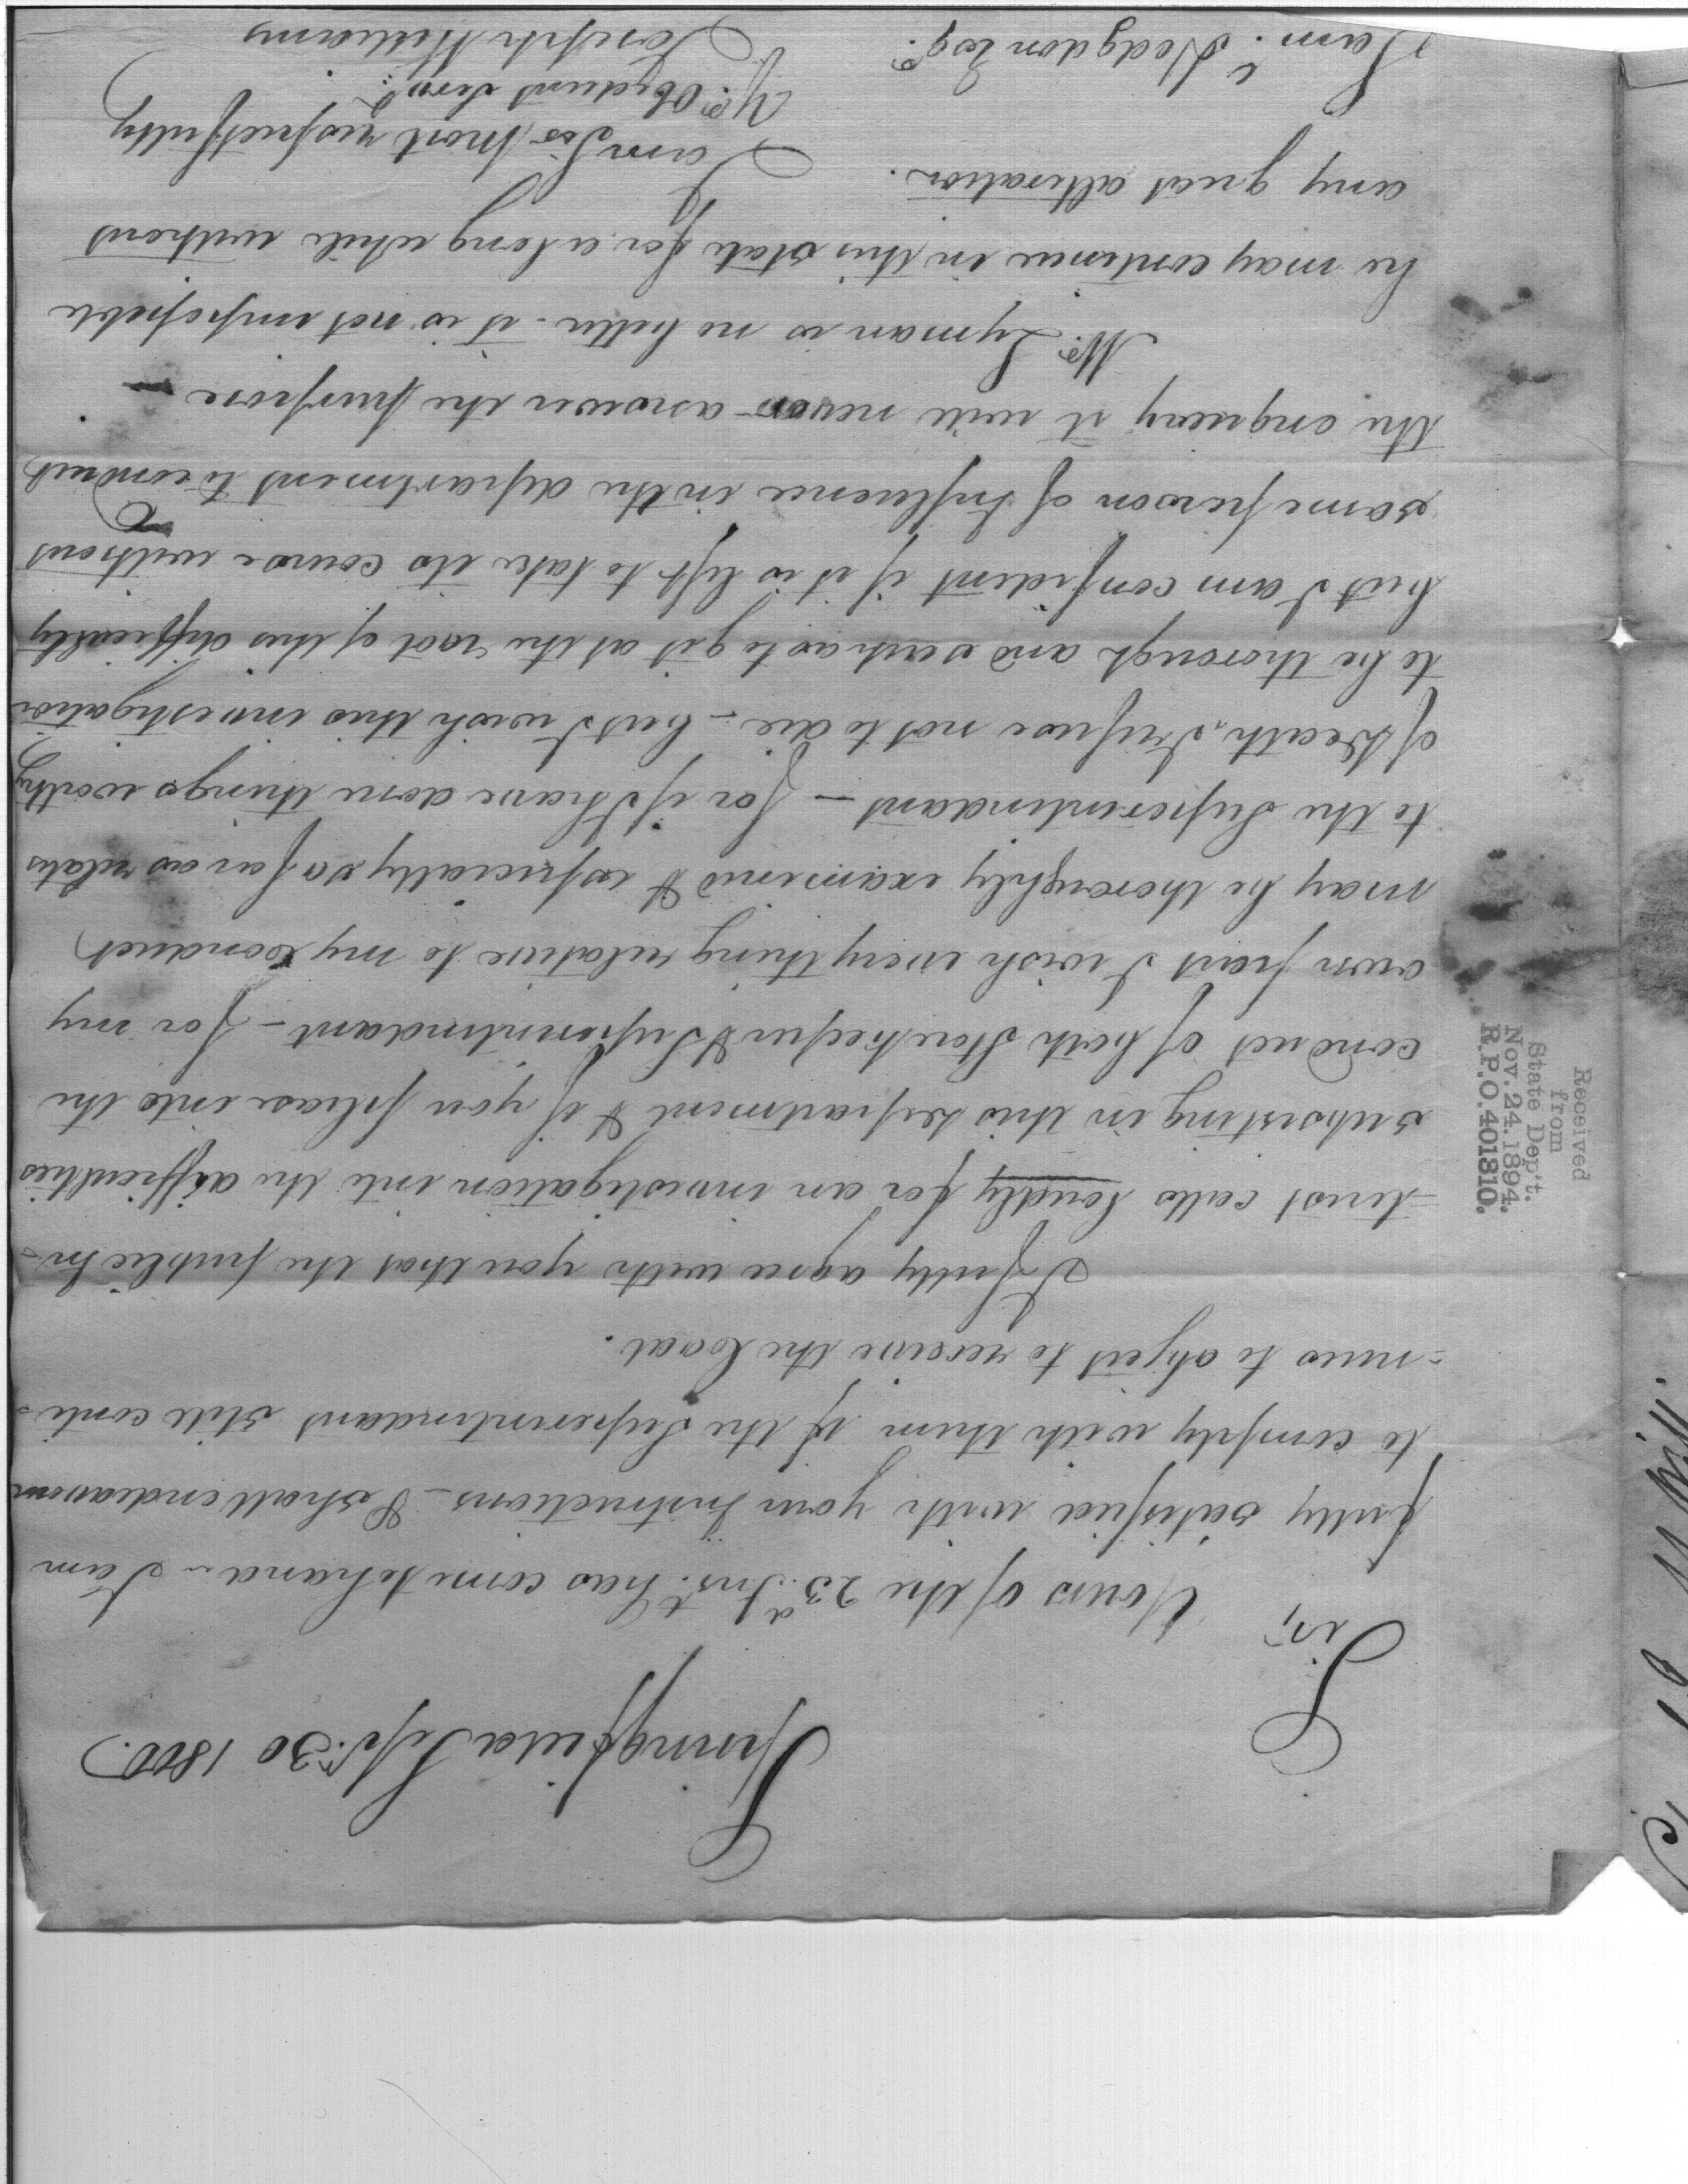 Springfield Sept. 30 1800.
Sir,
Yours of the 23d Inst. has come to hand - I am
fully satisfied with your Instructions - & shall endeavour
to comply with them if the Superintendant still conti-
=nues to object to receive the Coal.
I fully agree with you that the public In-
-terest calls loudly for an investigation into the difficulties
subsisting in this Department & if you please into the
conduct of both Storekeeper & Superintendant - for my
own part I wish every thing relative to my conduct
may be thoroughly examined & especially so far as relates
to the Superintendant - for if I have done things worthy
of Death, I refuse not to die - but I wish this investigation
to be thorough and such as to get at the root of this difficulty
but I am confident if it is left to take its course without
some person of Influence in the department to conduct
the enquiry it will never answer the purpose -
Mr. Lyman is no better - it is not impropable
he may continue in this state for a long while without
any great alteration.
I am Sir most respectfully
Yr. Obedient Servt.
Joseph Williams
Sam. Hodgdon Esqr.
Received
from
State Dep't.
Nov. 24. 1894.
R.P.O. 401810.